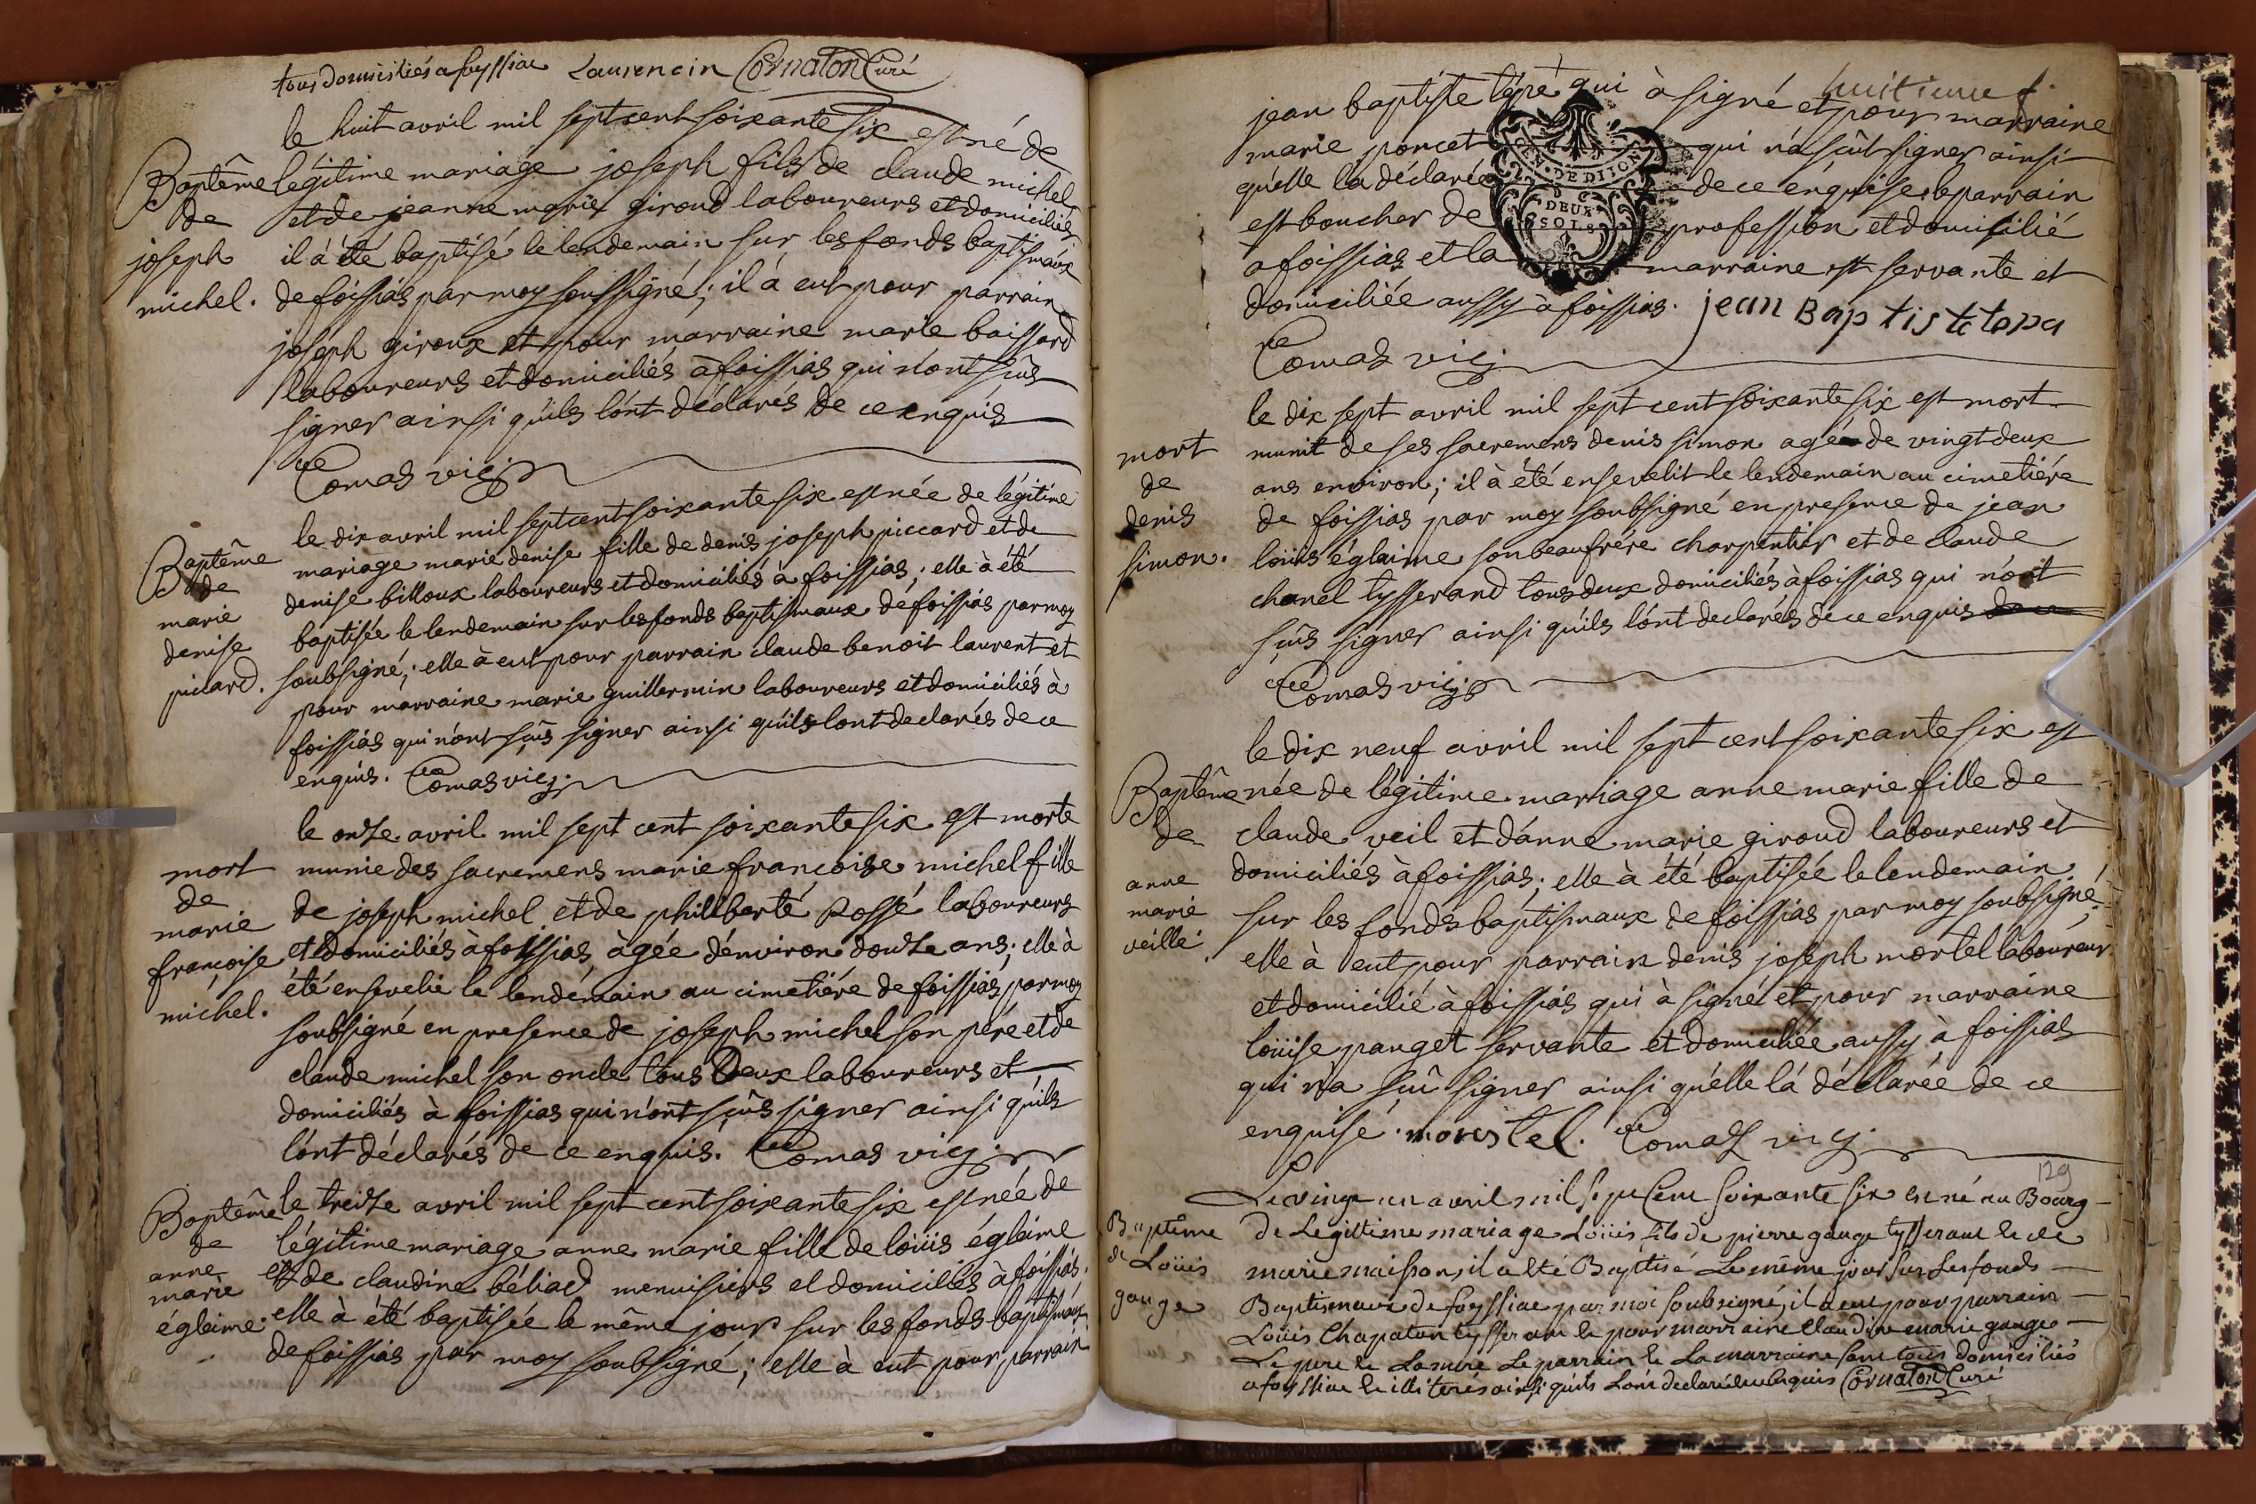 tous domiciliés a foyssiac Laurencin Cornaton Curé
le huit avril mil sept cent soixante six est né de
Baptême
de
joseph
michel.
légitime mariage joseph fils de claude michel
et de jeanne marie giroud laboureurs et domiciliés
il à été baptisé le lendemain sur les fonds baptismaux
de foissiàs par moy soussigné; il à eut pour parrain
joseph giroux et pour marraine marie baissard
laboureurs et domiciliés à foissias qui n'ont sûs
signer ainsi qu'ils l'ont déclarés de ce enquis
Comas vic
le dix avril mil sept cent soixante six est née de légitime
Baptême
de
marie
denise
picard.
mariage marie denise fille de denis joseph piccard et de
denise billoux laboureurs et domiciliés à foissias; elle à été
baptisée le lendemain sur les fonds baptismaux de foissiàs par moy
soubsigné; elle à eut pour parrain claude benoit laurent et
pour marraine marie guillermin laboureurs et domiciliés à
foissiàs qui n'ont sûs signer ainsi qu'ils l'ont declarés de ce
enquis. Comas vic
le onze avril mil sept cent soixante six est morte
mort
de
marie
françoise
michel.
munie des sacremens marie françoise michel fille
de joseph michel et de philiberte Possé laboureurs
et domiciliés à foissias àgée d'environ douze ans; elle à
été ensevelie le lendemain au cimetière de foissias par moy
soubsigné en presence de joseph michel son père et de
claude michel son oncle tous Deux laboureurs et
domiciliés à foissias qui n'ont sûs signer ainsi qu'ils
l'ont déclarés de ce enquis. Comas vic
Baptême
de
anne
marie
églaime.
le treize avril mil sept cent soixante six est née de
légitime mariage anne marie fille de loüis églaime
et de claudine béliad menuisiers et domiciliés à foissias.
elle à été baptisée le même jour sur les fonds baptismaux
de foissias par moy soubsigné; elle à eut pour parrain
huitieme f.
jean baptiste tépe qui à signé et pour marraine
marie poncet qui n'a sût signer ainsi
qu'elle la déclarée de ce enquise. le parrain
est boucher de profession et domicilié
à foissias et la marraine est servante et
domiciliée aussy à foissias. jean Baptis te
GEN. DE DIJON
DEUX
SOLS
Comas vic
le dix sept avril mil sept cent soixante six est mort
mort
de
denis
simon.
munit de ses sacremens denis simon agé de vingt deux
ans environ; il à été ensevelit le lendemain au cimetière
de foissias par moy soubsigné en presence de jean
loüis églaime son beaufrére charpentier et de claude
chanel tysserand tous deux domiciliés à foissias qui n'ont
sûs signer ainsi qu'ils l'ont declarés de ce enquis
Comas vic
le dix neuf avril mil sept cent soixante six est
Baptême
de
anne
marie
veille.
née de légitime mariage anne marie fille de
claude veil et d'anne marie giroud laboureurs et
domiciliés à foissias; elle à été baptisée le lendemain
sur les fonds baptismaux de foissias par moy soubsigné;
elle à eut pour parrain denis joseph mortel laboureur
et domicilié à foissiàs qui à signé et pour marraine
loüise panget servante et domiciliée aussy à foissias
qui n'a sçû signer ainsi qu'elle l'à déclarée de ce
enquise. Comas vic
129
Le vingt un avril mil sept Cent soixante six est né au Bourg
Baptême
de Loüis
gauge
de Legittime mariage Loüis fils de pierre gauge tysserant et de
marie maisson, il a été Baptisé Le même jour sur Les fonds
Baptismaux de foyssiac par moi soubsigné, il a eut pour parrain
Loüis Chapaton tysserant et pour marraine Claudine marie gauge
Le pere et La mere Le parrain et La marraine sont tous domiciliés
a foyssiac et illiterés ainsi qu'ils L'ont declaré de ce enquis Cornaton Curé